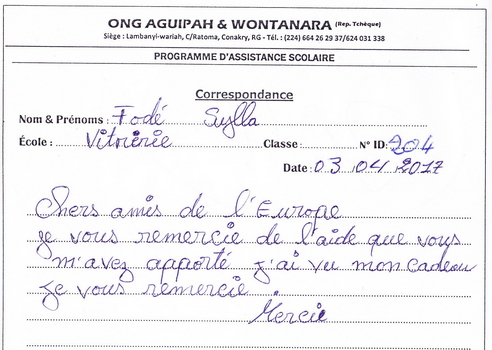 ONG AGUIPAH & WONTANARA (Rep. Tchèque)
Siège : Lambanyi-wariah, C/Ratoma, Conakry, RG - Tél. : (224) 664 26 29 37/624 031 338
PROGRAMME D'ASSISTANCE SCOLAIRE
Correspondance
Nom & Prénoms : Fodé Sylla
École : Vitrierie Classe : N° ID: 204
Date : 03 04 2017
Chers amis de l'Europe
je vous remercie de l'aide que vous
m'avez apporté j'ai vu mon cadeau
je vous remercie.
Mercie